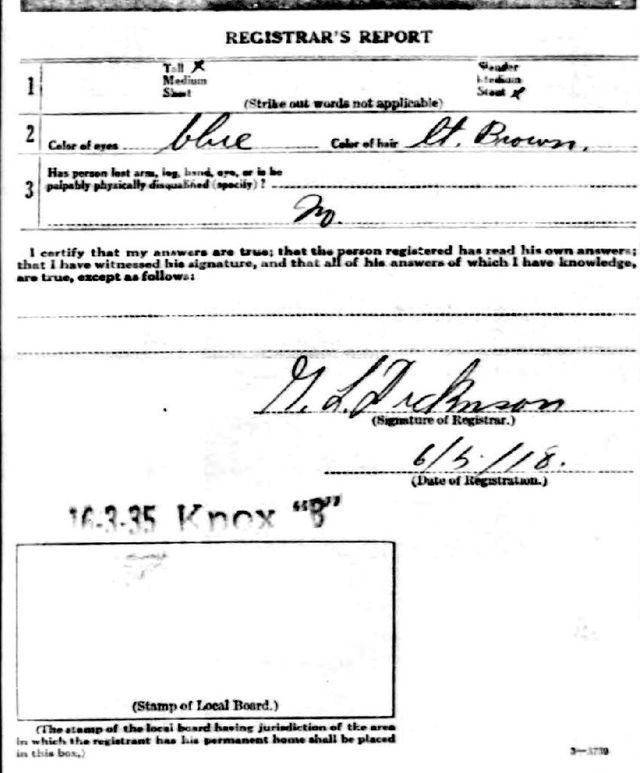 REGISTRAR'S REPORT
1
Tall x Slender
Medium Medium
Short Stout x
(Strike out words not applicable)
2 Color of eyes blue Color of hair Lt. Brown.
3 Has person lost arm, leg, hand, eye, or is he
palpably physically disqualified (specify)?
No.
I certify that my answers are true; that the person registered has read his own answers;
that I have witnessed his signature, and that all of his answers of which I have knowledge,
are true, except as follows:
G. L. Dickinson
(Signature of Registrar.)
6/5/18.
(Date of Registration.)
16-3-35 Knox "B"
(Stamp of Local Board.)
(The stamp of the local board having jurisdiction of the area
in which the registrant has his permanent home shall be placed
in this box.)
3—3739